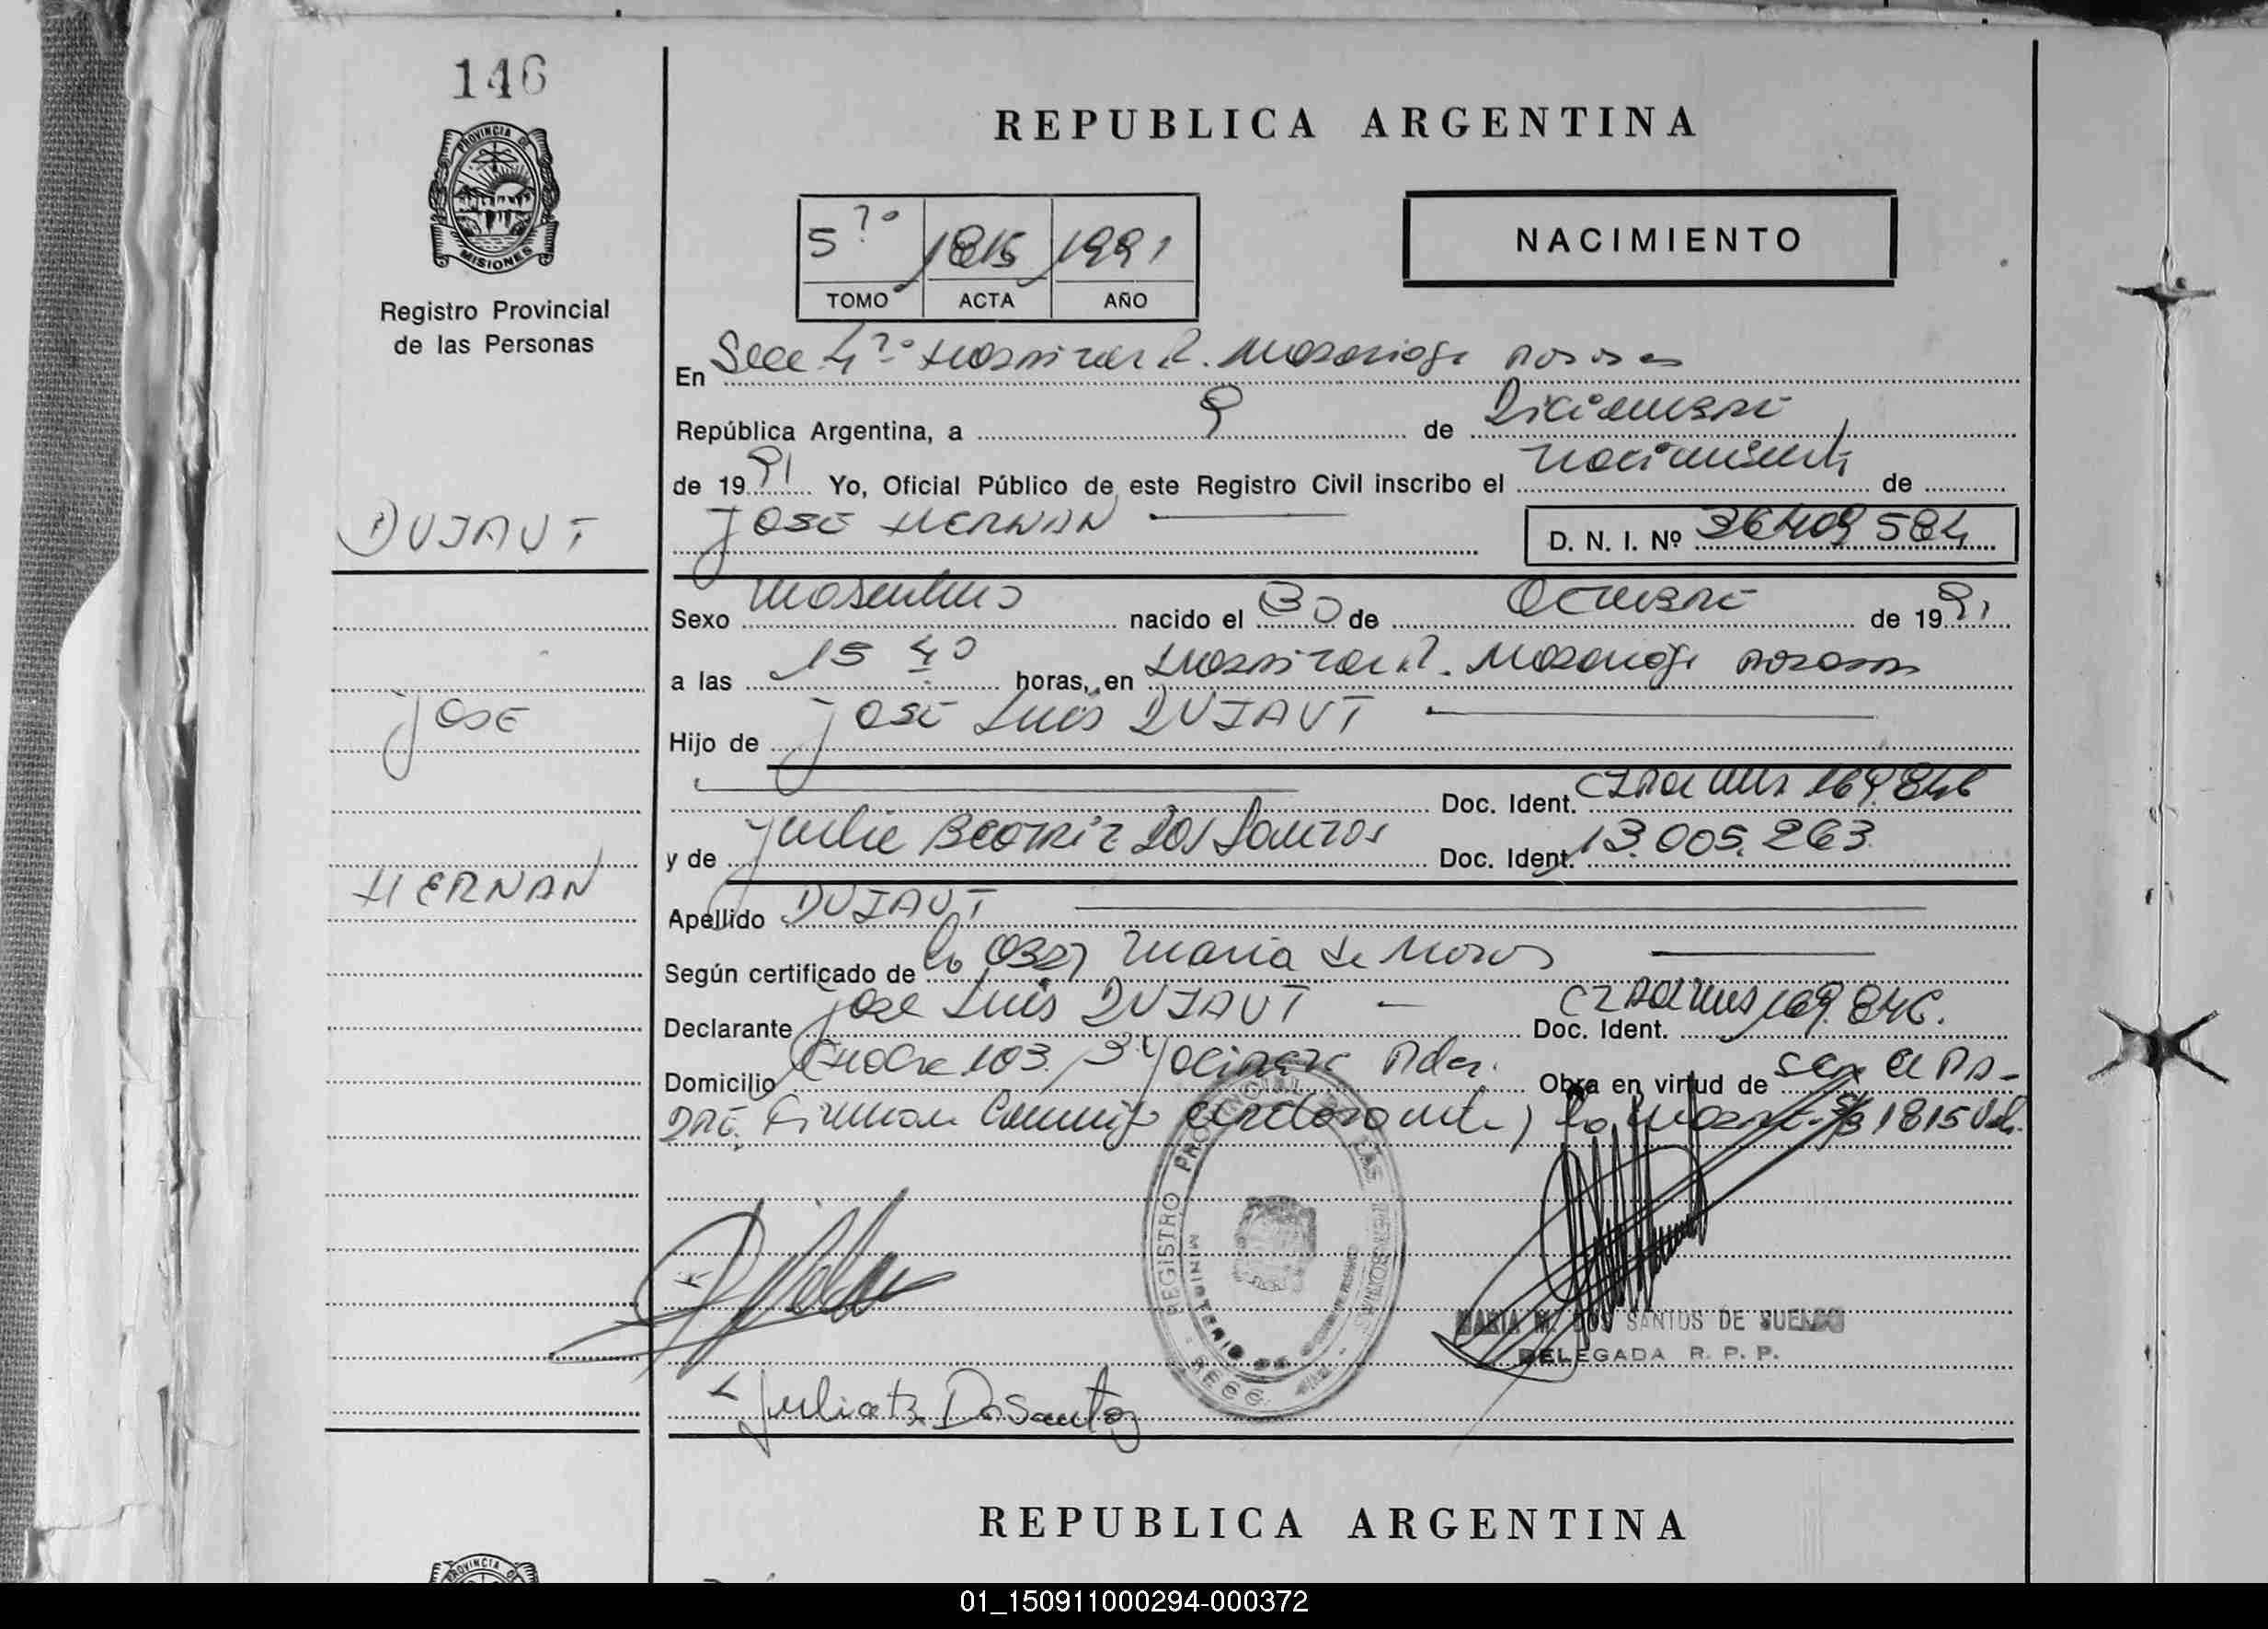 146
PROVINCIA DE
MISIONES
Registro Provincial
de las Personas
DUJAUT
JOSE
HERNAN
REPUBLICA ARGENTINA
5º 1815 1991
TOMO ACTA AÑO
NACIMIENTO
En Secc 4º Hospital R. Madariaga Posadas
República Argentina, a 9 de Diciembre
de 1991 Yo, Oficial Público de este Registro Civil inscribo el Nacimiento de
JOSE HERNAN D. N. I. Nº 36409584
Sexo Masculino nacido el 30 de Octubre de 1991
a las 15 40 horas, en Hospital R. Madariaga Posadas
Hijo de José Luis DUJAUT
Doc. Ident. 169.846
y de Julia Beatriz Dos Santos Doc. Ident. 13.005.263
Apellido DUJAUT
Según certificado de la Obst María de
Declarante José Luis DUJAUT Doc. Ident. 169.846.
Domicilio 103. Obra en virtud de ser el PA-
DRE. Firman Conmigo el declarante y la 1815
REGISTRO PROVINCIAL DE LAS PERSONAS
MINISTERIO DE GOBIERNO
Julia B. Dos Santos
MARIA M. DOS SANTOS DE
DELEGADA R. P. P.
REPUBLICA ARGENTINA
PROVINCIA DE
01_150911000294-000372